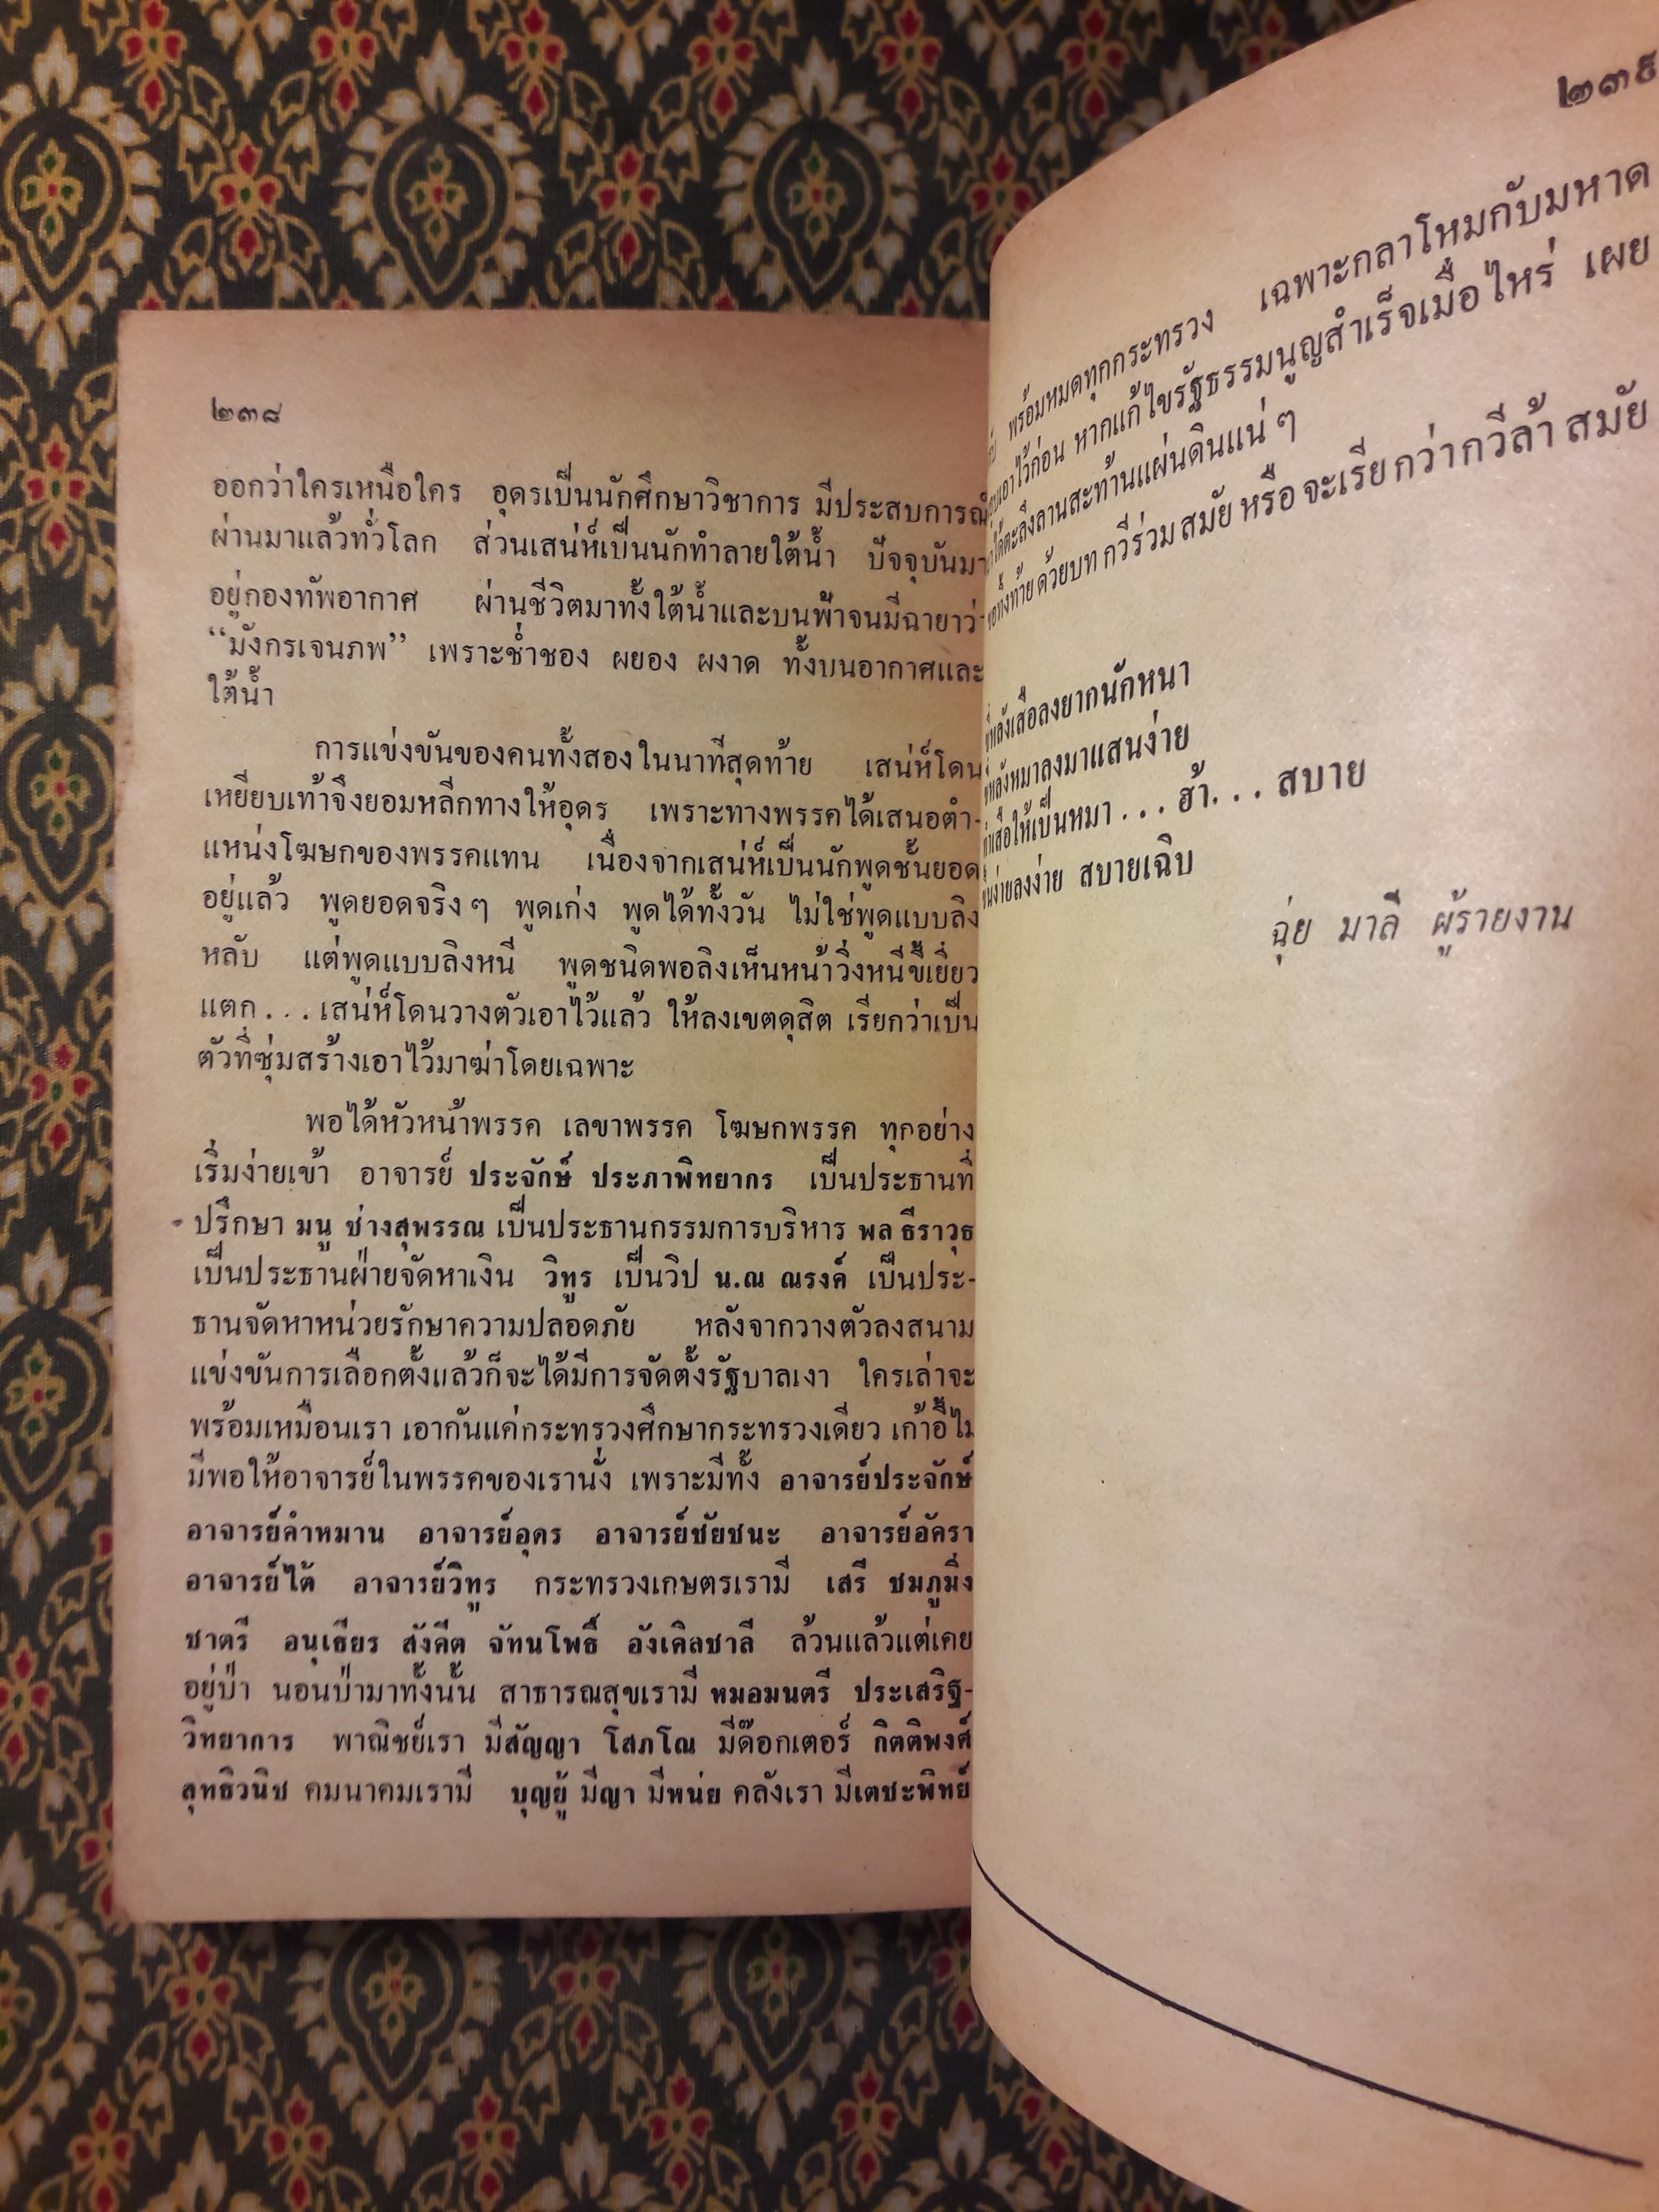 ๒๓๘
ออกว่าใครเหนือใคร อุดรเป็นนักศึกษาวิชาการ มีประสบการณ์
ผ่านมาแล้วทั่วโลก ส่วนเสน่ห์เป็นนักทำลายใต้น้ำ ปัจจุบันมา
อยู่กองทัพอากาศ ผ่านชีวิตมาทั้งใต้น้ำและบนฟ้าจนมีฉายาว่า
“มังกรเจนภพ” เพราะช่ำชอง ผยอง ผงาด ทั้งบนอากาศและ
ใต้น้ำ
การแข่งขันของคนทั้งสองในนาทีสุดท้าย เสน่ห์โดน
เหยียบเท้าจึงยอมหลีกทางให้อุดร เพราะทางพรรคได้เสนอตำ-
แหน่งโฆษกของพรรคแทน เนื่องจากเสน่ห์เป็นนักพูดชั้นยอด
อยู่แล้ว พูดยอดจริง ๆ พูดเก่ง พูดได้ทั้งวัน ไม่ใช่พูดแบบลิง
หลับ แต่พูดแบบลิงหนี พูดชนิดพอลิงเห็นหน้าวิ่งหนีขี้เยี่ยว
แตก . . . เสน่ห์โดนวางตัวเอาไว้แล้ว ให้ลงเขตดุสิต เรียกว่าเป็น
ตัวที่ซุ่มสร้างเอาไว้มาฆ่าโดยเฉพาะ
พอได้หัวหน้าพรรค เลขาพรรค โฆษกพรรค ทุกอย่าง
เริ่มง่ายเข้า อาจารย์ ประจักษ์ ประภาพิทยากร เป็นประธานที่
ปรึกษา มนู ช่างสุพรรณ เป็นประธานกรรมการบริหาร พล ธีราวุธ
เป็นประธานฝ่ายจัดหาเงิน วิทูร เป็นวิป น.ณ ณรงค์ เป็นประ-
ธานจัดหาหน่วยรักษาความปลอดภัย หลังจากวางตัวลงสนาม
แข่งขันการเลือกตั้งแล้วก็จะได้มีการจัดตั้งรัฐบาลเงา ใครเล่าจะ
พร้อมเหมือนเรา เอากันแค่กระทรวงศึกษากระทรวงเดียว เก้าอี้ไม่
มีพอให้อาจารย์ในพรรคของเรานั่ง เพราะมีทั้ง อาจารย์ประจักษ์
อาจารย์คำหมาน อาจารย์อุดร อาจารย์ชัยชนะ อาจารย์อัครา
อาจารย์ไต้ อาจารย์วิทูร กระทรวงเกษตรเรามี เสรี ชมภูมิ่ง
ชาตรี อนุเธียร สังคีต จัทนโพธิ์ อังเคิลชาลี ล้วนแล้วแต่เคย
อยู่ป่า นอนป่ามาทั้งนั้น สาธารณสุขเรามี หมอมนตรี ประเสริฐ-
วิทยาการ พาณิชย์เรา มีสัญญา โสภโณ มีด๊อกเตอร์ กิตติพงศ์
สุทธิวนิช คมนาคมเรามี บุญยู้ มีญา มีหน่ย คลังเรา มีเตชะพิทย์
๒๓๙
พร้อมหมดทุกกระทรวง เฉพาะกลาโหมกับมหาด
เอาไว้ก่อน หากแก้ไขรัฐธรรมนูญสำเร็จเมื่อไหร่ เผย
ได้ตะลึงลานสะท้านแผ่นดินแน่ ๆ
ขอทิ้งท้ายด้วยบท กวีร่วมสมัย หรือ จะเรียกว่ากวีล้ำ สมัย
หลังเสือลงยากนักหนา
หลังหมาลงมาแสนง่าย
เสือให้เป็นหมา . . . ฮ้า. . . สบาย
ง่ายลงง่าย สบายเฉิบ
ฉุ่ย มาลี ผู้รายงาน